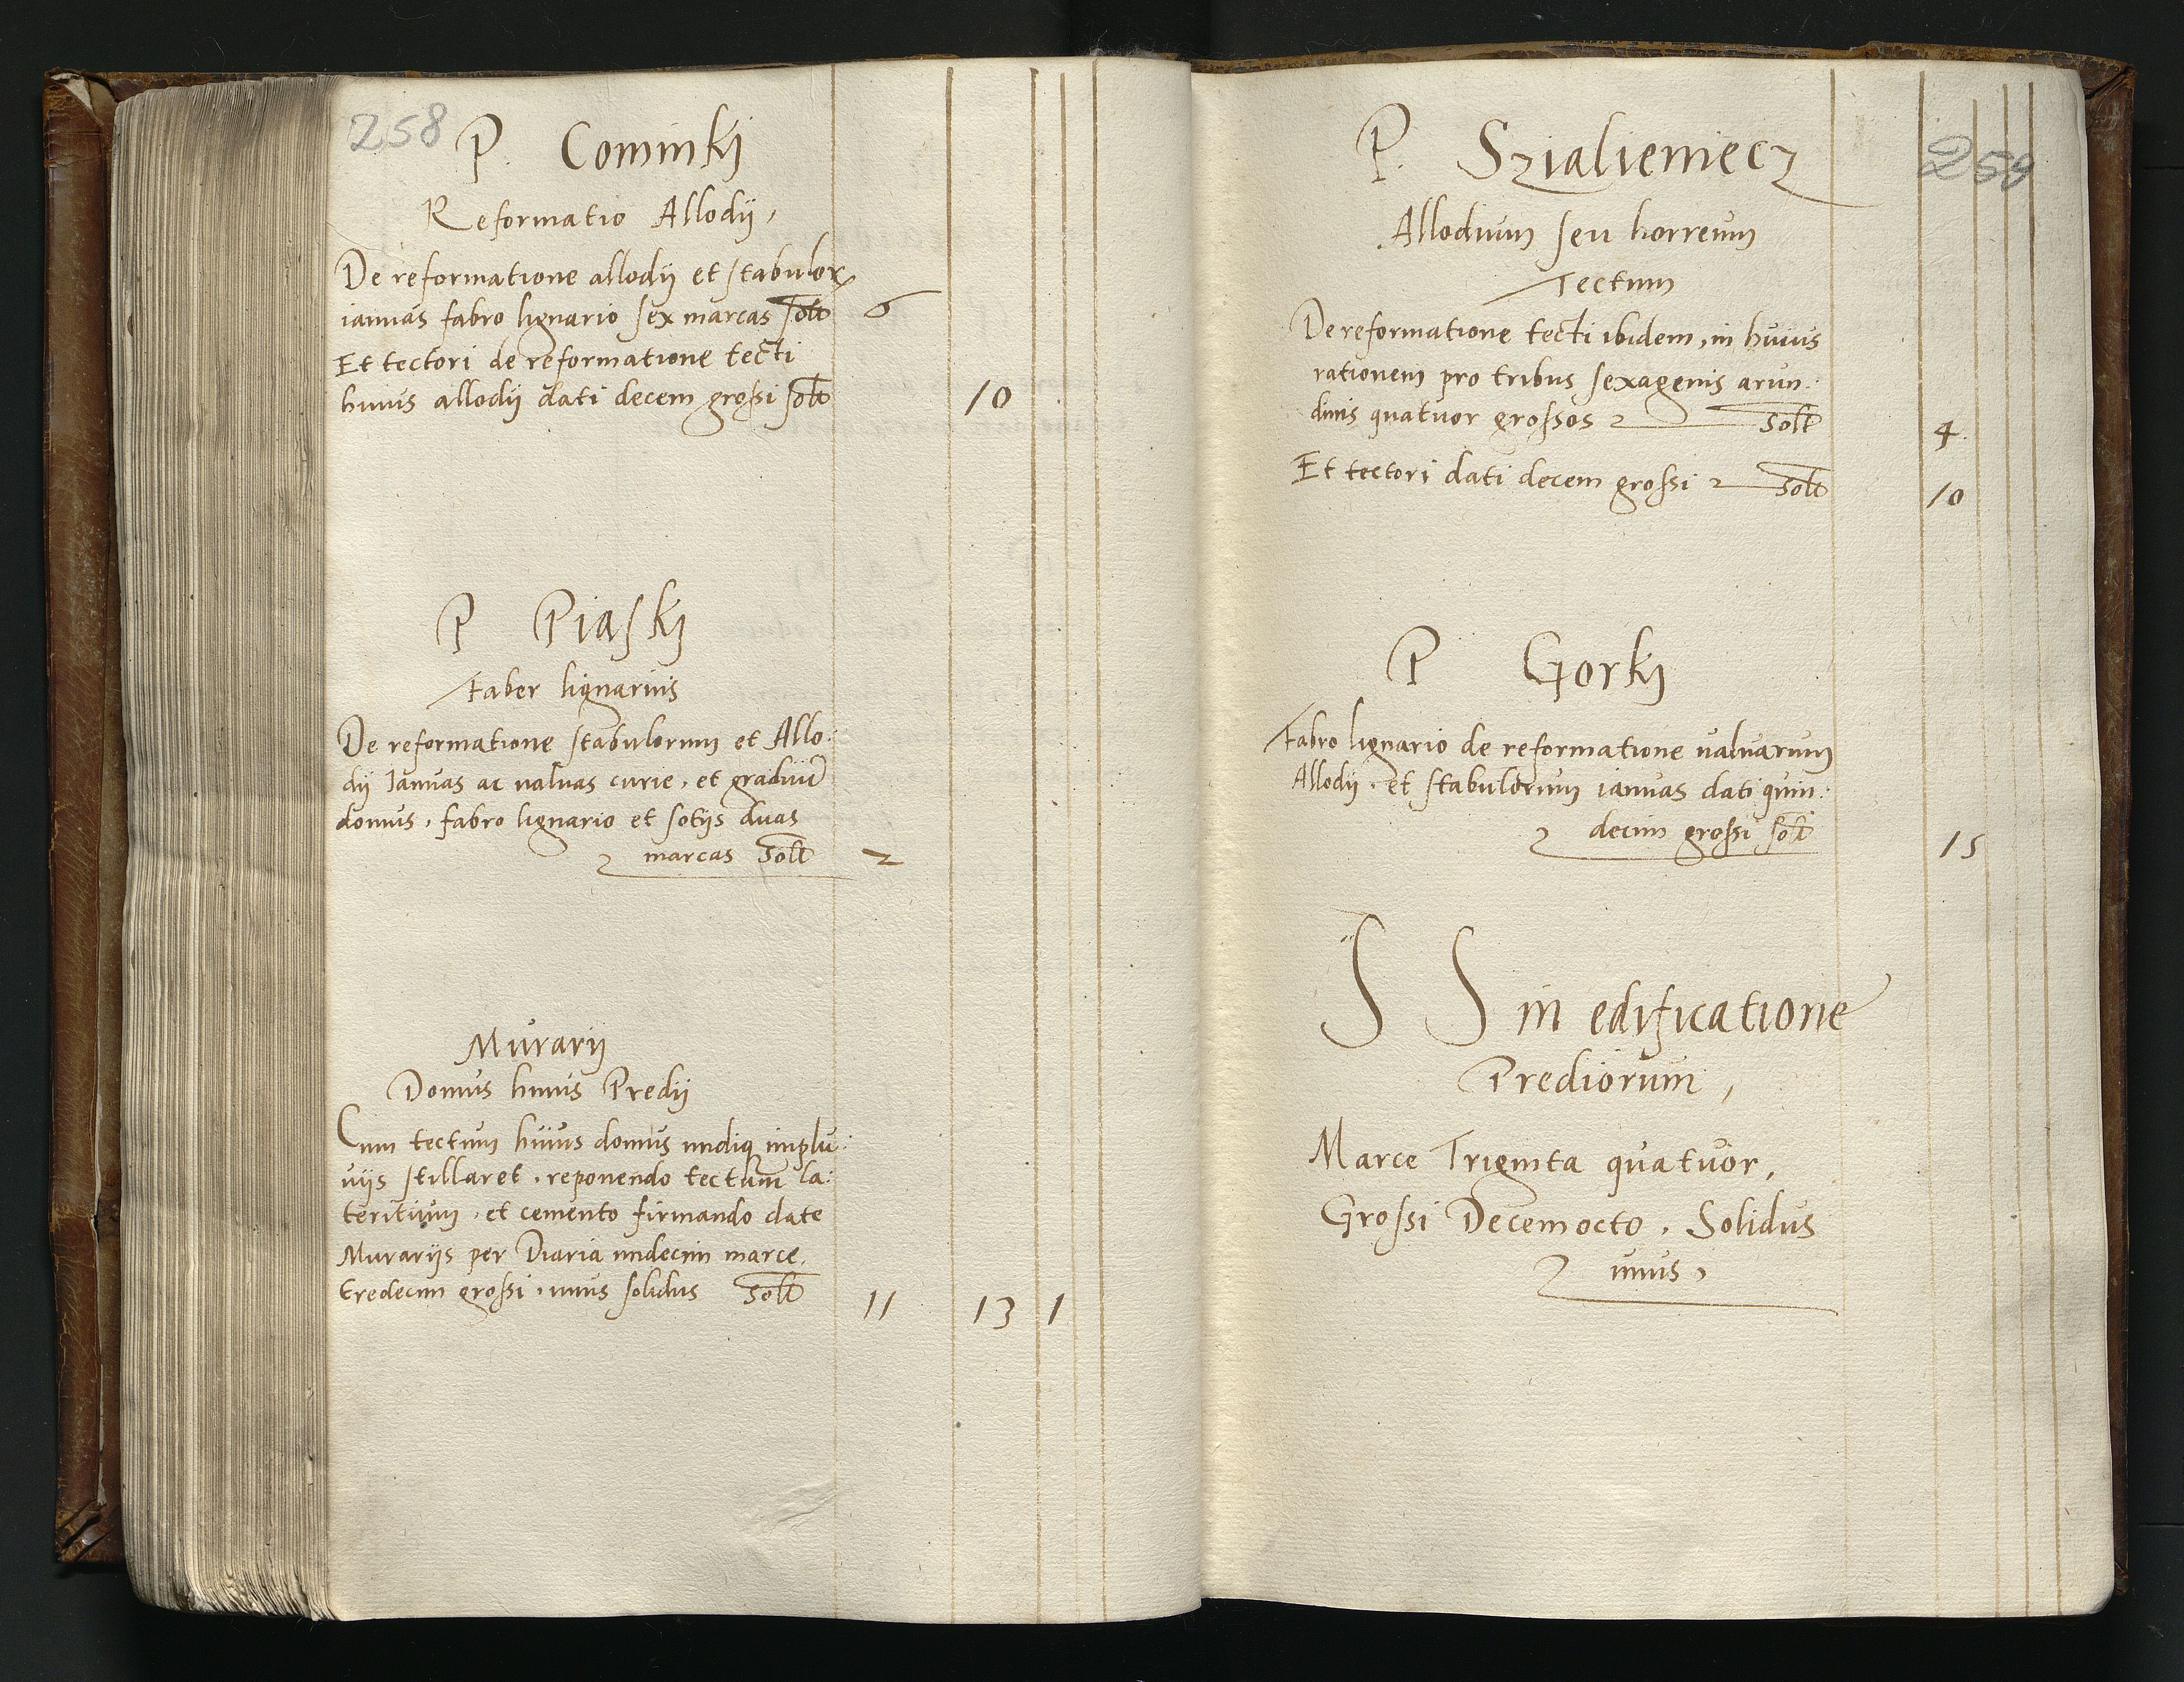 258
P. Cominki
Reformatio Allodij,
De reformatione allodij et stabulor
ianuas fabro lignario sex marcas solt 6
Et tectori de reformatione tecti
huius allodij dati decem grossi solt 10
P Piaski
Faber lignarius
De reformatione stabulorum et Allo:
dij Ianuas ac valuas curie, et graduum
domus, fabro lignario et sotijs duas
marcas Solt 2
Murarij
Domus huius Predij
Cum tectum huius domus undiq implu:
vijs stillaret, reponendo tectum la:
teritium, et cemento firmando date
Murarijs per Diaria undecim marce,
tredecim grossi, unus solidus Solt 11 13 1
259
P. Szialieniecz
Allodium seu horreum
Tectum
De reformatione tecti ibidem, in huius
rationem pro tribus sexagenis arun:
dinis quatuor grossos Solt 4
Et tectori dati decem grossi Solt 10
P Gorki
Fabro lignario de reformatione valuarum
Allodij, et stabulorum ianuas dati quin:
decim grossi solt 15
S S in edificatione
Prediorum,
Marce Triginta quatuor,
Grossi Decemocto, Solidus
unus,